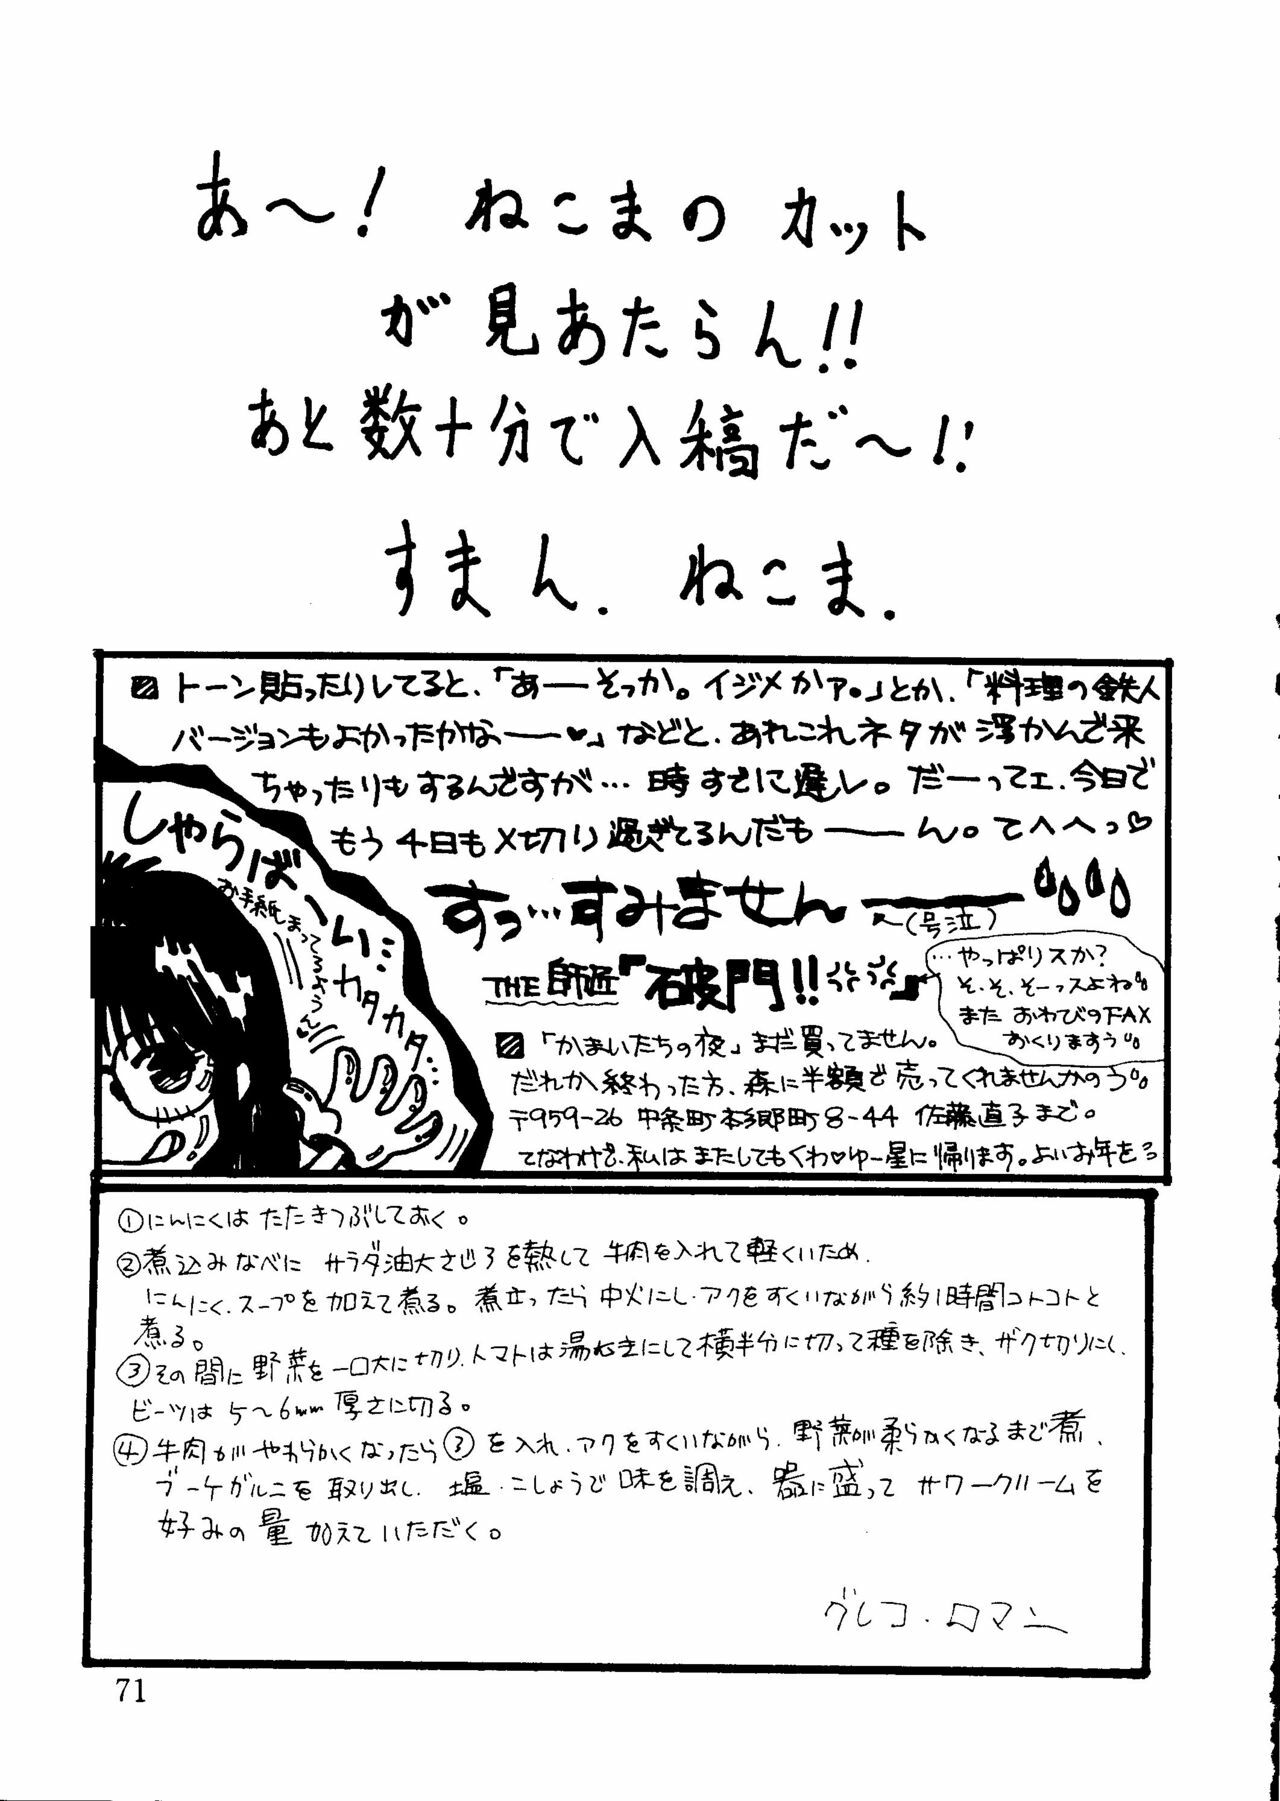 あ〜! ねこまの カット
が見あたらん!!
あと数十分で入稿だ〜!!
すまん. ねこま.
トーン貼ったりしてると、「あーーそっか。イジメかァ。」とか、「料理の鉄人
バージョンもよかったかなーー♥」などと、あれこれネタが浮かんで来
ちゃったりもするんですが… 時すでに遅し。だーってェ、今日で
もう4日も〆切り過ぎてるんだもーーん。てへへっ♡
すっ…すみませんーーー
(号泣)
THE 師匠「破門!!」
…やっぱりスか?
そ、そ、そーっスよね
また おわびのFAX
おくりますぅ
しゃらば〜い…
お手紙まってるよぅん
カタカタ…
「かまいたちの夜」まだ買ってません。
だれか終わった方、森に半額で売ってくれませんかのぅ
〒959-26 中条町本郷町8-44 佐藤直子まで。
てなわけで、私はまたしてもくわ♡ゆー星に帰ります。よいお年をろ
①にんにくは たたきつぶしておく。
②煮込みなべに サラダ油大さじ3を熱して 牛肉を入れて軽くいため、
にんにく、スープを加えて煮る。煮立ったら 中火にし、アクをすくいながら約1時間コトコトと
煮る。
③その間に野菜を一口大に切り、トマトは湯むきにして横半分に切って種を除き、ザク切りにし、
ビーツは5〜6mm厚さに切る。
④牛肉がやわらかくなったら③を入れ、アクをすくいながら、野菜が柔らかくなるまで煮、
ブーケガルニを取り出し、塩・こしょうで味を調え、器に盛って サワークリームを
好みの量 加えていただく。
グレコ・ロマン
71